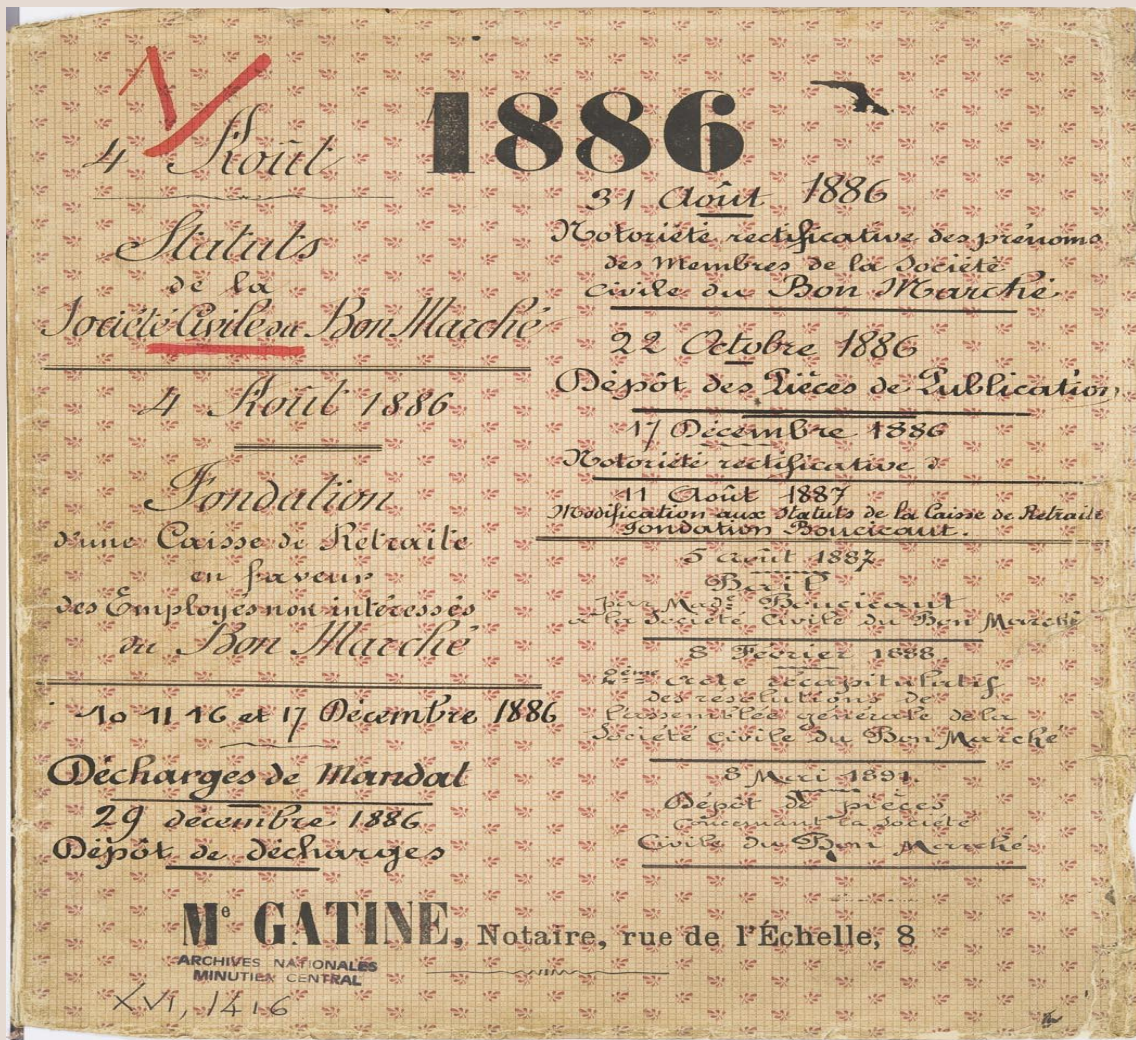 1886
4 Août
Statuts
de la
Société Civile du Bon Marché
4 Août 1886
Fondation
d'une Caisse de Retraite
en faveur
des Employés non intéressés
du Bon Marché
10 11 16 et 17 Décembre 1886
Décharges de Mandat
29 décembre 1886
Dépôt de décharges
31 Août 1886
Notoriété rectificative des prénoms
des Membres de la Société
civile du Bon Marché
22 Octobre 1886
Dépôt des Pièces de Publication
17 Décembre 1886
Notoriété rectificative
11 Août 1887
Modification aux Statuts de la Caisse de Retraite
Fondation Boucicaut.
5 août 1887
Bail
par Made Boucicaut
à la Société Civile du Bon Marché
8 Février 1888
2ème acte récapitulatif
des résolutions de
l'assemblée générale de la
Société Civile du Bon Marché
8 Mai 1891.
Dépôt de pièces
concernant la Société
Civile du Bon Marché
Me GATINE, Notaire, rue de l'Échelle, 8
ARCHIVES NATIONALES
MINUTIER CENTRAL
XVI, 1416